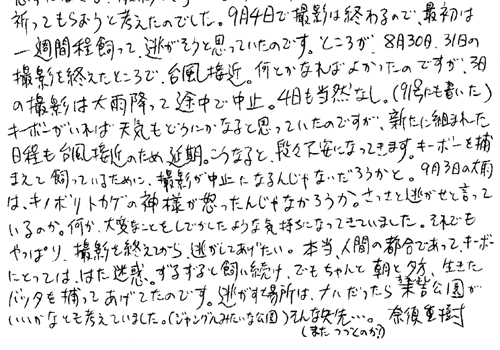 祈ってもらおうと考えたのでした。9月4日で撮影は終わるので、最初は
一週間程飼って、逃がそうと思っていたのです。ところが、8月30日、31日の
撮影を終えたところで、台風接近。何とかなればよかったのですが、3日
の撮影は大雨降って途中で中止。4日も当然なし。(91号にも書いた)
キーボーがいれば天気もどうにかなると思っていたのですが、新たに組まれた
日程も台風接近のため延期。こうなると、段々不安になってきます。キーボーを捕
まえて飼っているために、撮影が中止になるんじゃないだろうかと。9月3日の大雨
は、キノボリトカゲの神様が怒ったんじゃなかろうか。さっさと逃がせと言って
いるのか。何か、大変なことをしでかしたような気持ちになってきていました。それでも
やっぱり、撮影を終えてから、逃がしてあげたい。本当、人間の都合であって、キーボー
にとっては、はた迷惑。ずるずると飼い続け、でもちゃんと朝と夕方、生きた
バッタを捕ってあげてたのです。逃がす場所は、ナハだったら末吉公園が
いいかなとも考えていました。(ジャングルみたいな公園)そんな矢先…。奈須重樹
(またつづくのか?)